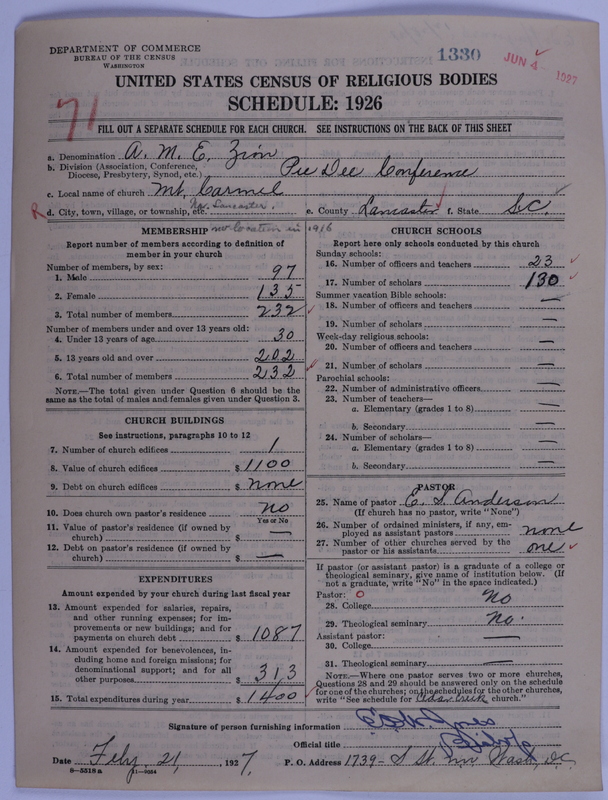 DEPARTMENT OF COMMERCE
BUREAU OF THE CENSUS
WASHINGTON
1330
JUN 4 1927
UNITED STATES CENSUS OF RELIGIOUS BODIES
SCHEDULE: 1926
71
FILL OUT A SEPARATE SCHEDULE FOR EACH CHURCH. SEE INSTRUCTIONS ON THE BACK OF THIS SHEET
a. Denomination A. M. E. Zion
b. Division (Association, Conference, Diocese, Presbytery, Synod, etc.) Pee Dee Conference
c. Local name of church Mt. Carmel
R d. City, town, village, or township, etc. Nr. Lancaster e. County Lancaster f. State S.C.
MEMBERSHIP
Report number of members according to definition of member in your church
Number of members, by sex:
1. Male 97
2. Female 135
3. Total number of members 232
Number of members under and over 13 years old:
4. Under 13 years of age 30
5. 13 years old and over 202
6. Total number of members 232
NOTE.—The total given under Question 6 should be the same as the total of males and females given under Question 3.
CHURCH BUILDINGS
See instructions, paragraphs 10 to 12
7. Number of church edifices 1
8. Value of church edifices $ 1100
9. Debt on church edifices $ none
10. Does church own pastor's residence no
Yes or No
11. Value of pastor's residence (if owned by church) $ —
12. Debt on pastor's residence (if owned by church) $ —
EXPENDITURES
Amount expended by your church during last fiscal year
13. Amount expended for salaries, repairs, and other running expenses; for improvements or new buildings; and for payments on church debt $ 1087
14. Amount expended for benevolences, including home and foreign missions; for denominational support; and for all other purposes $ 313
15. Total expenditures during year $ 1400
CHURCH SCHOOLS
Report here only schools conducted by this church
Sunday schools:
16. Number of officers and teachers 23
17. Number of scholars 130
Summer vacation Bible schools:
18. Number of officers and teachers —
19. Number of scholars —
Week-day religious schools:
20. Number of officers and teachers —
21. Number of scholars —
Parochial schools:
22. Number of administrative officers —
23. Number of teachers—
a. Elementary (grades 1 to 8) —
b. Secondary —
24. Number of scholars—
a. Elementary (grades 1 to 8) —
b. Secondary —
PASTOR
25. Name of pastor E. S. Anderson
(If church has no pastor, write "None")
26. Number of ordained ministers, if any, employed as assistant pastors none
27. Number of other churches served by the pastor or his assistants one
If pastor (or assistant pastor) is a graduate of a college or theological seminary, give name of institution below. (If not a graduate, write "No" in the space indicated.)
Pastor: O
28. College No
29. Theological seminary No.
Assistant pastor:
30. College —
31. Theological seminary —
NOTE.—Where one pastor serves two or more churches, Questions 28 and 29 should be answered only on the schedule for one of the churches; on the schedules for the other churches, write "See schedule for Cedar Creek church."
Signature of person furnishing information
Official title Bishop
Date Feby. 21, 1927. P. O. Address 1739- S St. n.w. Wash, D.C.
8—5518a 11—9054